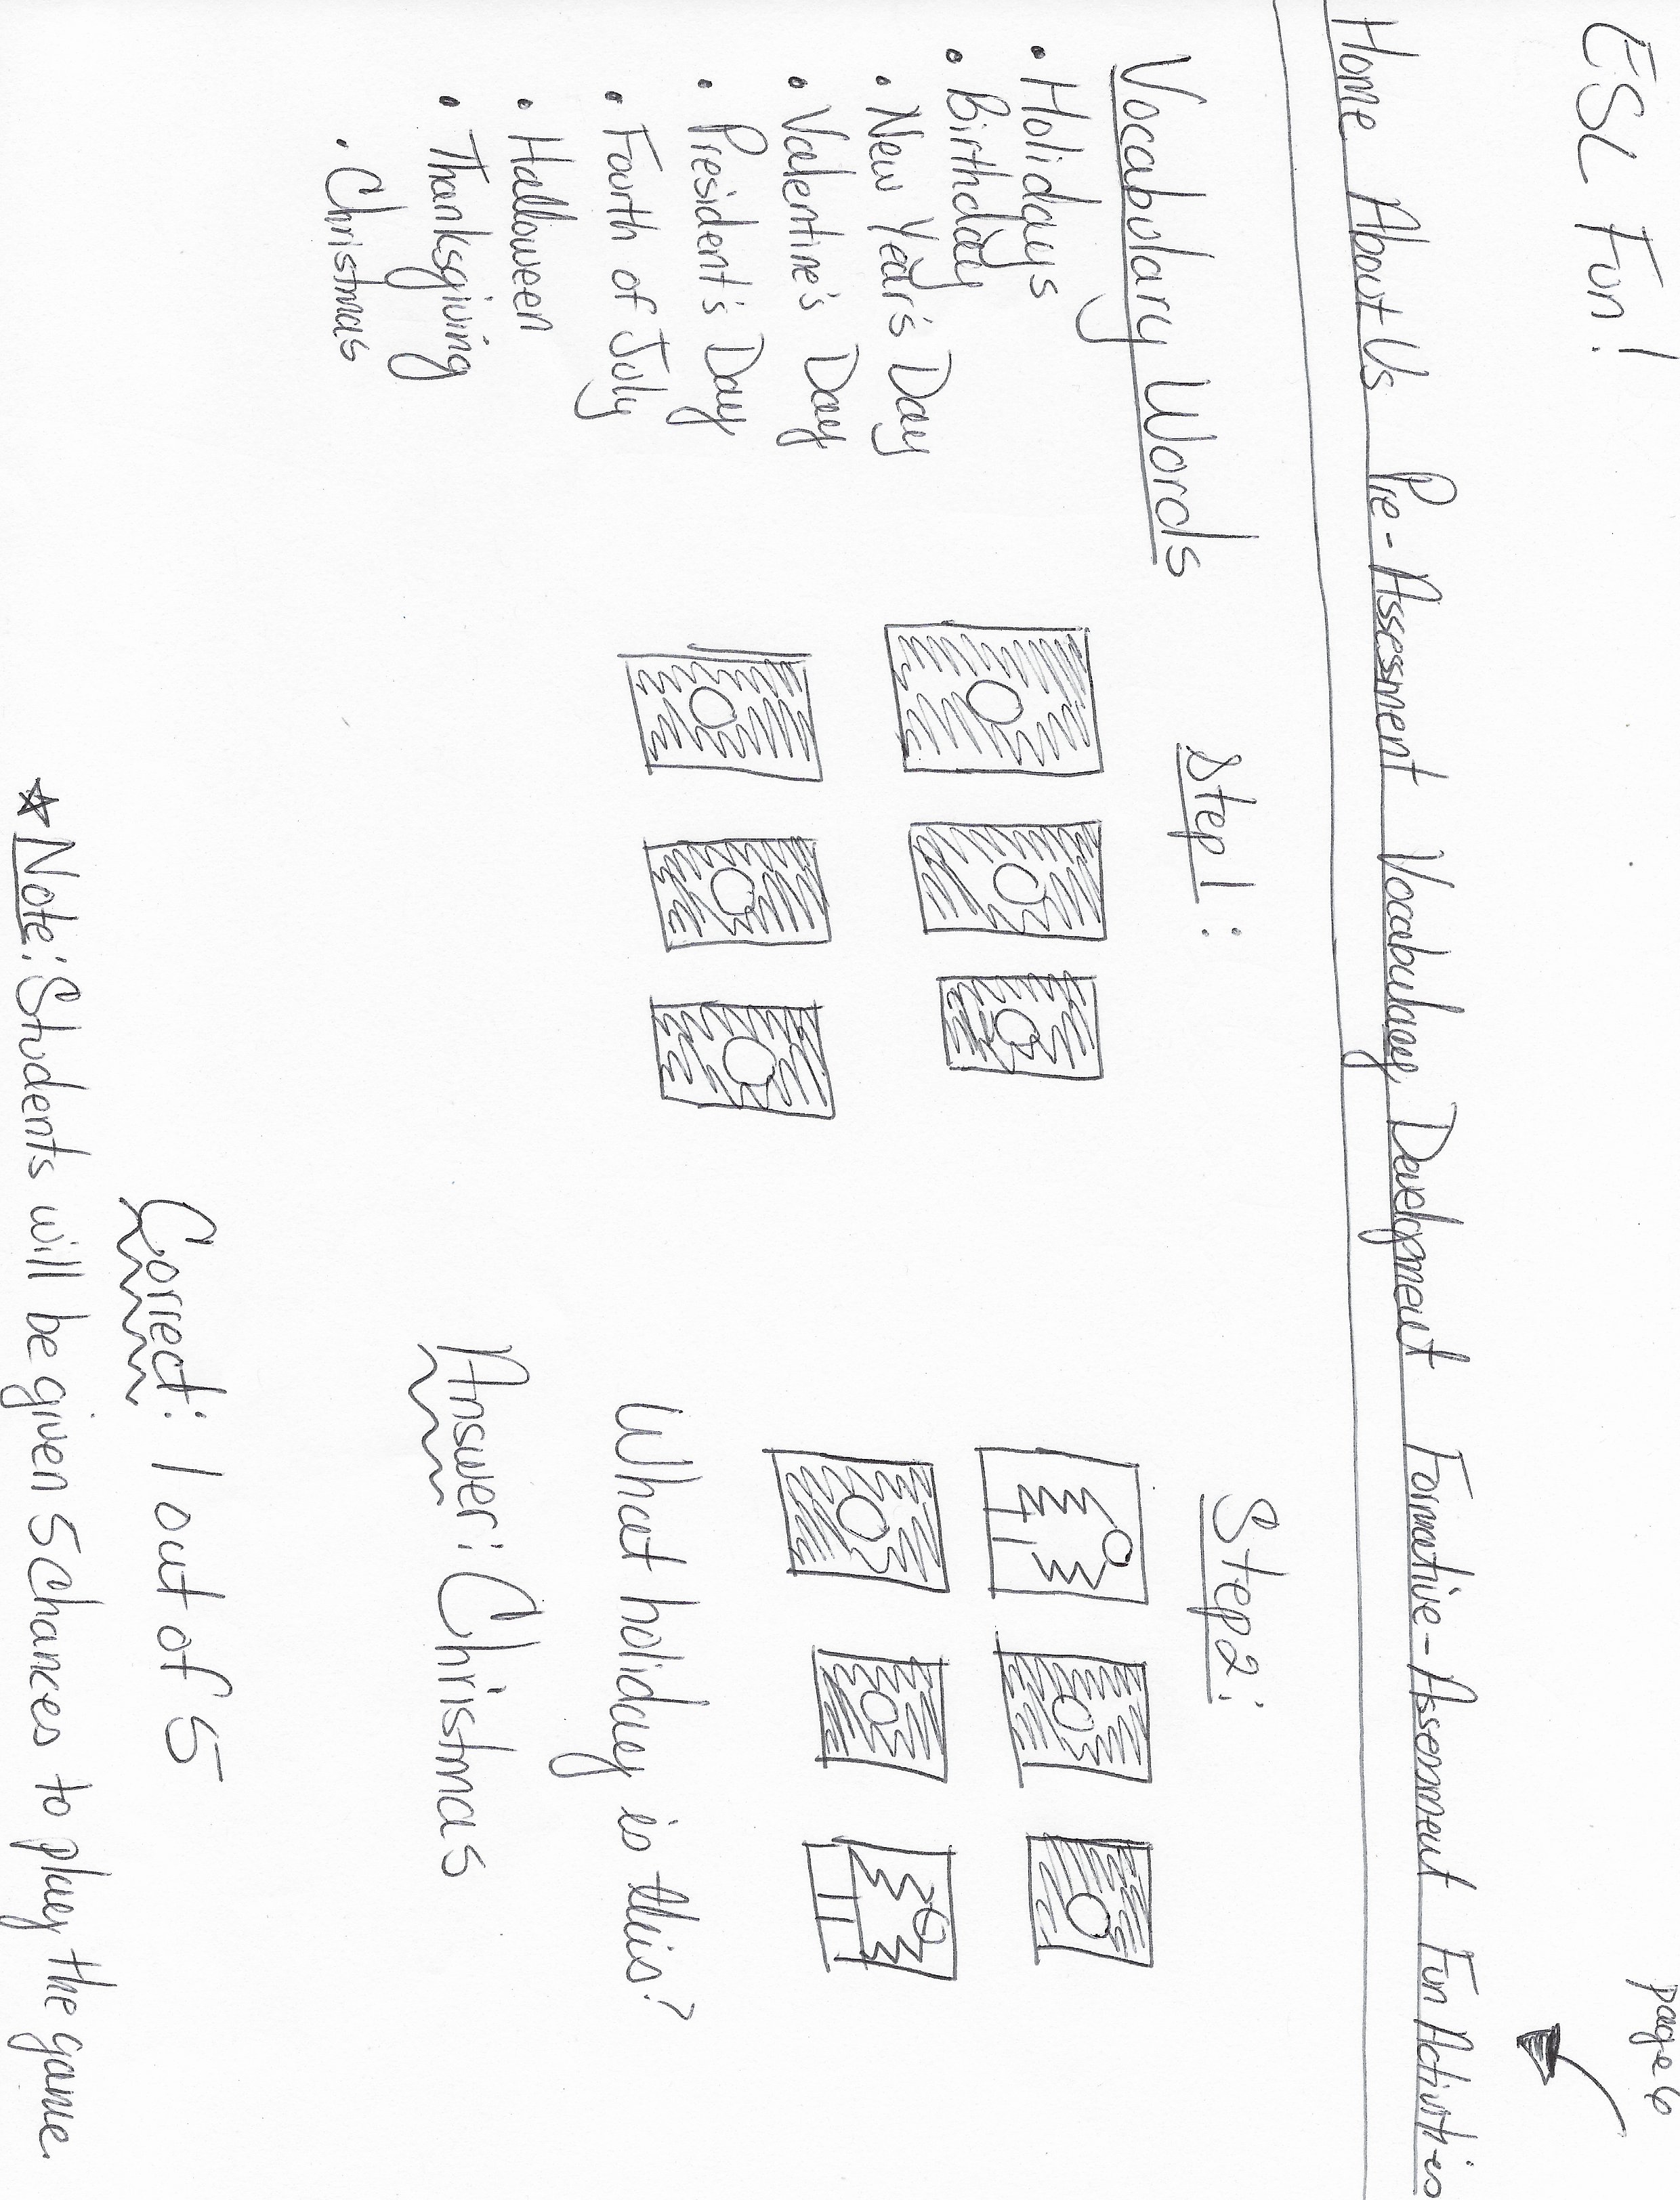 page 6
ESL Fun!
Home About Us Pre-Assessment Vocabulary Development Formative-Assessment Fun Activities
Vocabulary Words
• Holidays
• Birthday
• New Year's Day
• Valentine's Day
• President's Day
• Fourth of July
• Halloween
• Thanksgiving
• Christmas
Step 1:
Step 2:
What holiday is this?
Answer: Christmas
Correct: 1 out of 5
☆ Note: Students will be given 5 chances to play the game.